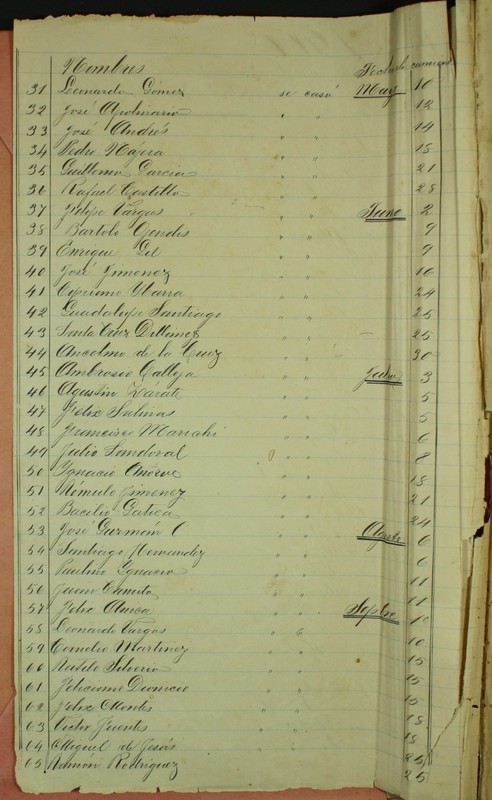 Nombres Fecha de
31 Leonardo Gómez se casó May 10
32 José Apolinario " " 12
33 José Andrés " " 14
34 Pedro Nájera " " 15
35 Guillermo García " " 21
36 Rafael Castillo " " 28
37 Felipe Vargas " " Junio 2
38 Bartolo " " 9
39 Enrique Gil " " 9
40 José Jimenez " " 16
41 Cipriano Ybarra " " 24
42 Guadalupe Santiago " " 25
43 Santa Cruz " " 25
44 Anselmo de la Cruz " " 30
45 Ambrosio Calleja " " Julio 3
46 Agustín Zárate " " 5
47 Felix Salinas " " 5
48 Francisco " " 6
49 Julio Sandoval " " 8
50 Ignacio " " 15
51 Rómulo Jimenez " " 21
52 Basilio " " 24
53 José Guzmán C " " Agosto 6
54 Santiago Hernandez " " 6
55 Paulino Ygnacio " " 11
56 Juan " " 11
57 Felix " " Sepbre
58 Leonardo Vargas " " 10
59 Cornelio Martinez " " 15
60 Silverio " " 15
61 Feliciano Dionicio " " 15
62 Felix Montes " " 18
63 Victor Fuentes " " 18
64 Miguel de Jesús " " 25
65 Ramón Rodriguez 25